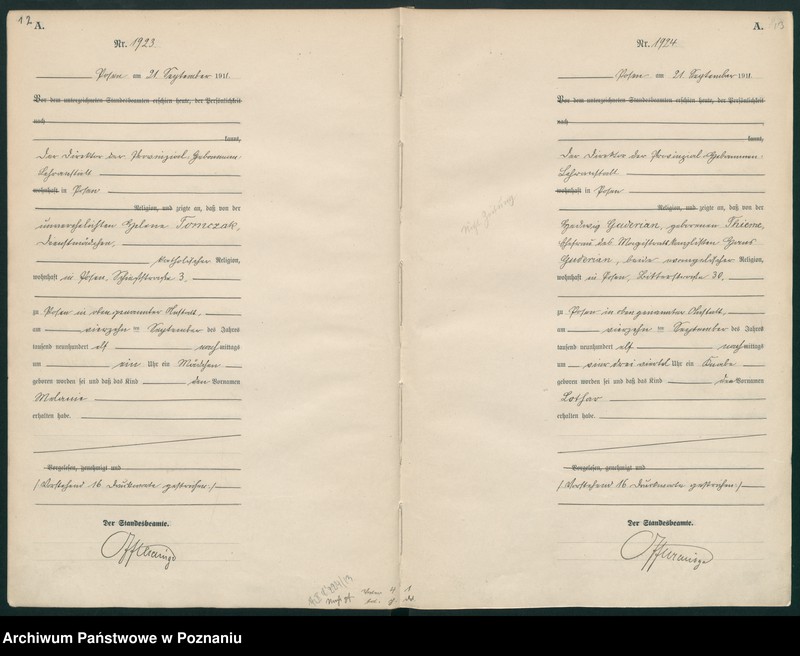 12
A.
Nr. 1923.
Posen am 21. September 1911.
Vor dem unterzeichneten Standesbeamten erschien heute, der Persönlichkeit
nach
kannt,
der Direktor der Provinzial-Hebammen-
Lehranstalt
wohnhaft in Posen
Religion, und zeigte an, daß von der
unverehelichten Helene Tomczak,
Dienstmädchen,
katholischer Religion,
wohnhaft in Posen, 3,
zu Posen in oben genannter Anstalt,
am vierzehn ten September des Jahres
tausend neunhundert elf nachmittags
um ein Uhr ein Mädchen
geboren worden sei und daß das Kind den Vornamen
Melanie
erhalten habe.
Vorgelesen, genehmigt und
(Vorstehend 16 Druckworte gestrichen.)
Der Standesbeamte.
A.
Nr. 1924.
Posen am 21. September 1911.
Vor dem unterzeichneten Standesbeamten erschien heute, der Persönlichkeit
nach
kannt,
der Direktor der Provinzial-Hebammen-
Lehranstalt
wohnhaft in Posen
Religion, und zeigte an, daß von der
Hedwig Guderian, geborenen Thieme,
Ehefrau des Magistratskanzlisten Hans
Guderian, beide evangelischer Religion,
wohnhaft in Posen, Ritterstraße 30,
zu Posen in oben genannter Anstalt,
am vierzehn ten September des Jahres
tausend neunhundert elf nachmittags
um vier drei viertel Uhr ein Knabe
geboren worden sei und daß das Kind den Vornamen
Lothar
erhalten habe.
Vorgelesen, genehmigt und
(Vorstehend 16 Druckworte gestrichen.)
Der Standesbeamte.
Archiwum Państwowe w Poznaniu